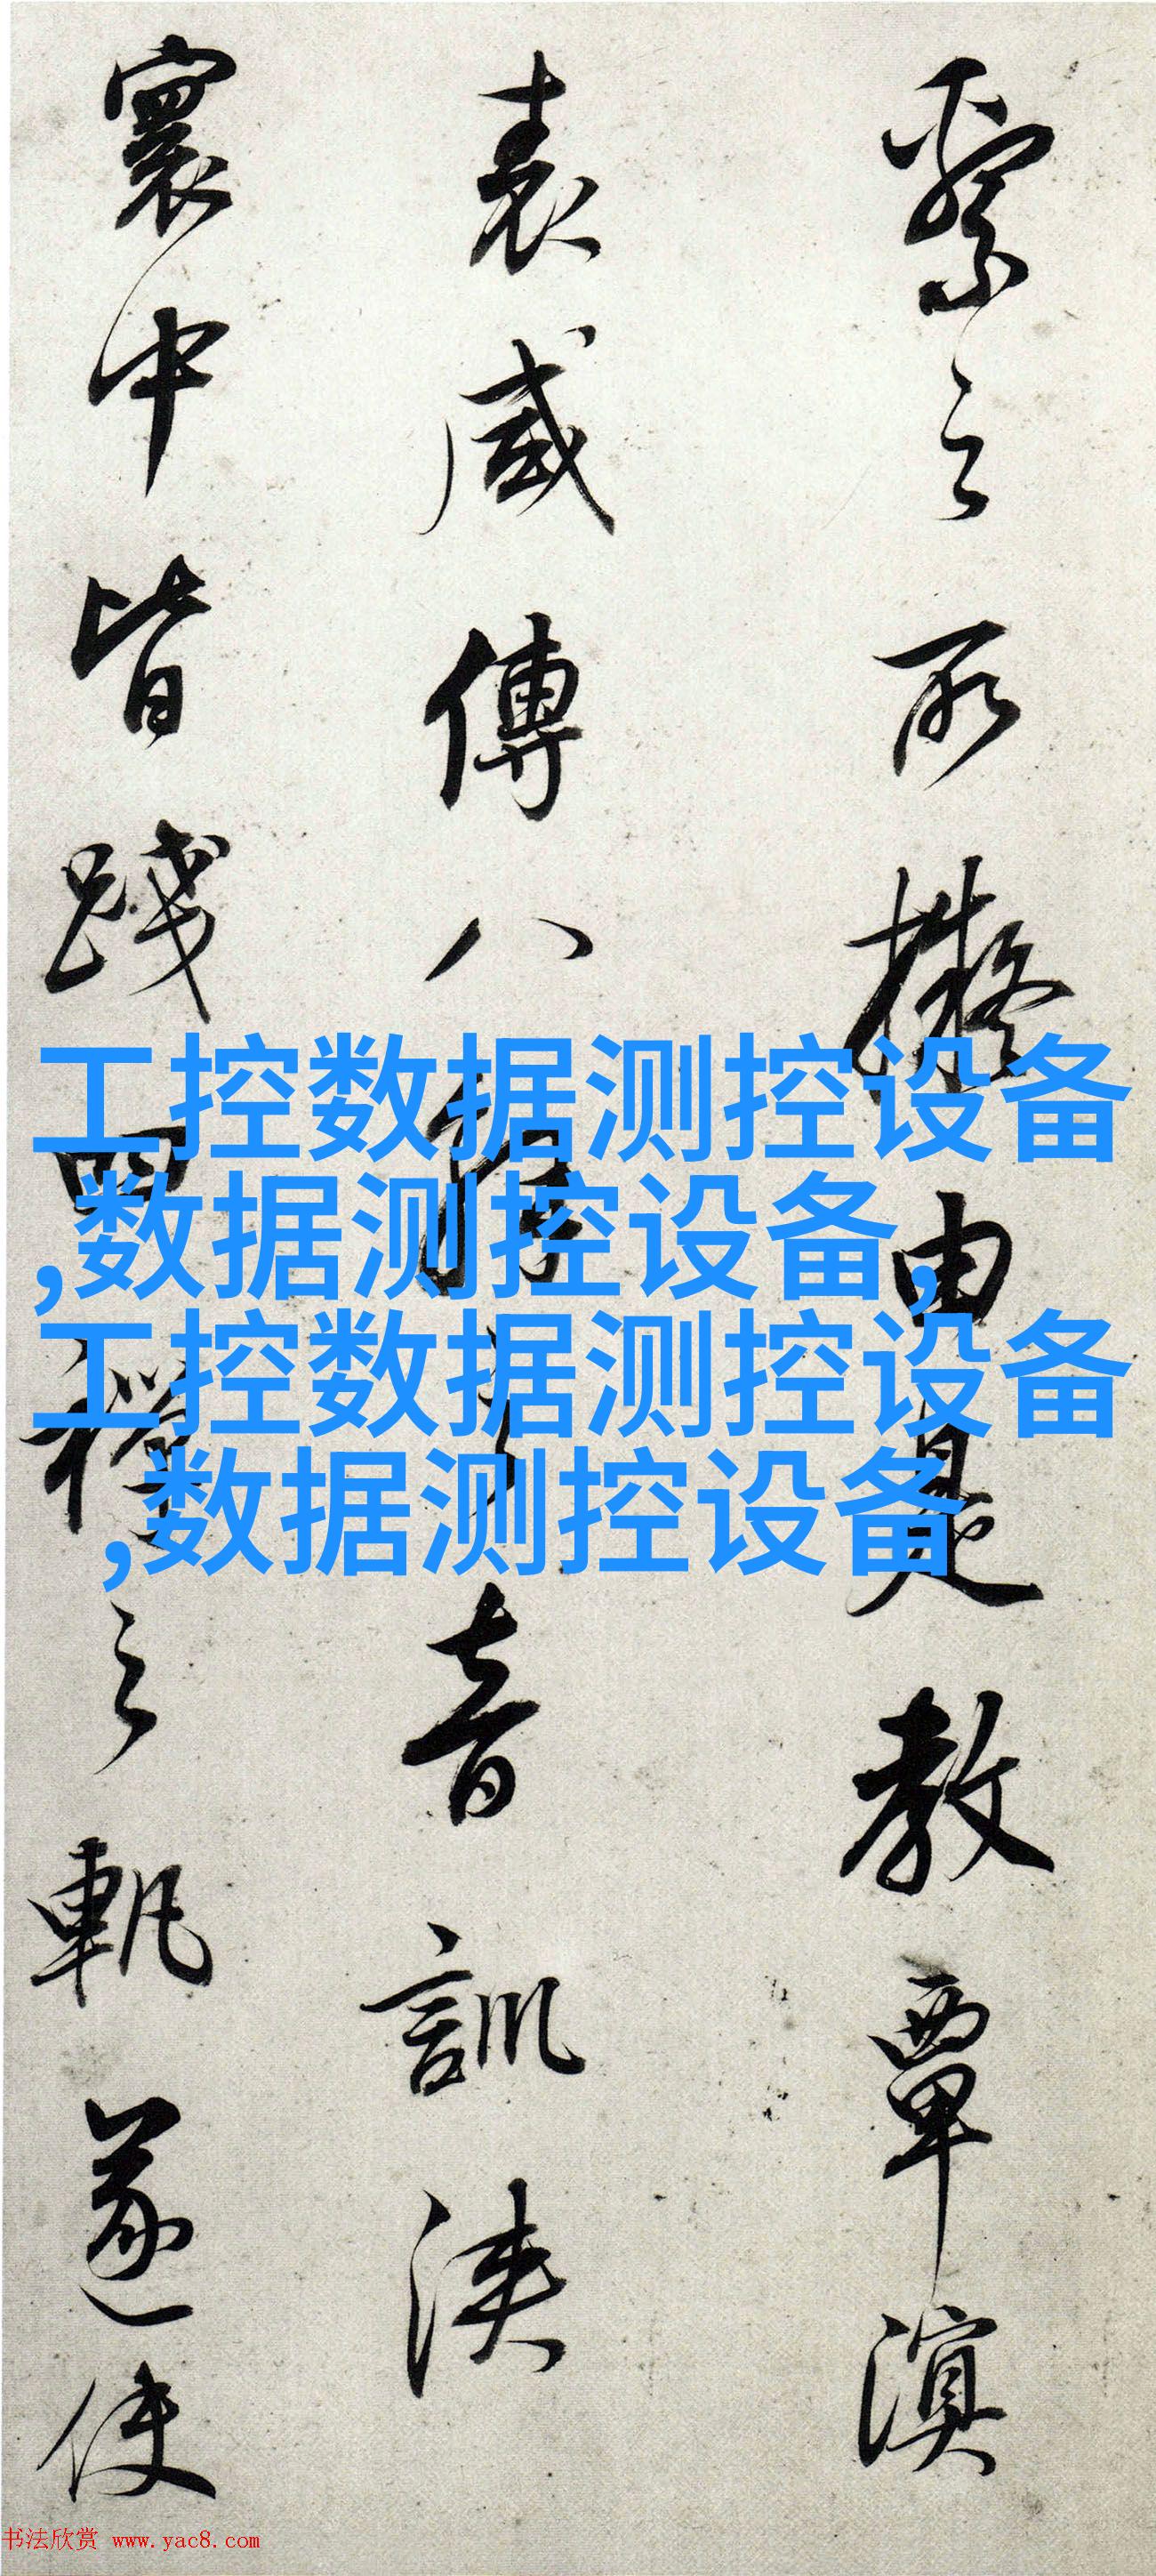 繫之所擬由是教覃溟
表咸傳八音訓浹
寰中皆踐四禪之軌遂使
工控数据测控设备
,数据测控设备,
工控数据测控设备
,数据测控设备
书法欣赏 www.yac8.com